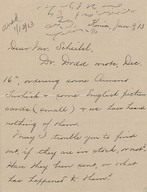 Jan 9/13
Dear Mr. Scheibel,
Dr. Drad wrote Dec.
16", ordering some Armand
Turlick & some English picture
cards (small) & we have heard
nothing of them.
May I trouble you to find
out if they are in stock, or not.
Have they been sent, or what
has happened to them?